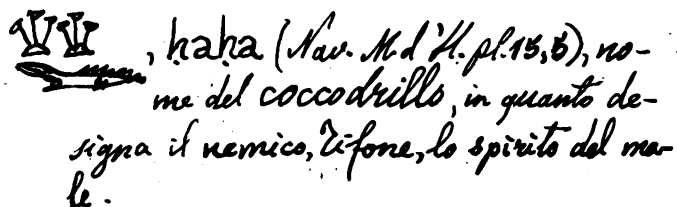 , ḥaḥa (Nav. M d'H. pl. 15, 5), no-
me del coccodrillo, in quanto de-
signa il nemico, Tifone, lo spirito del ma-
le.